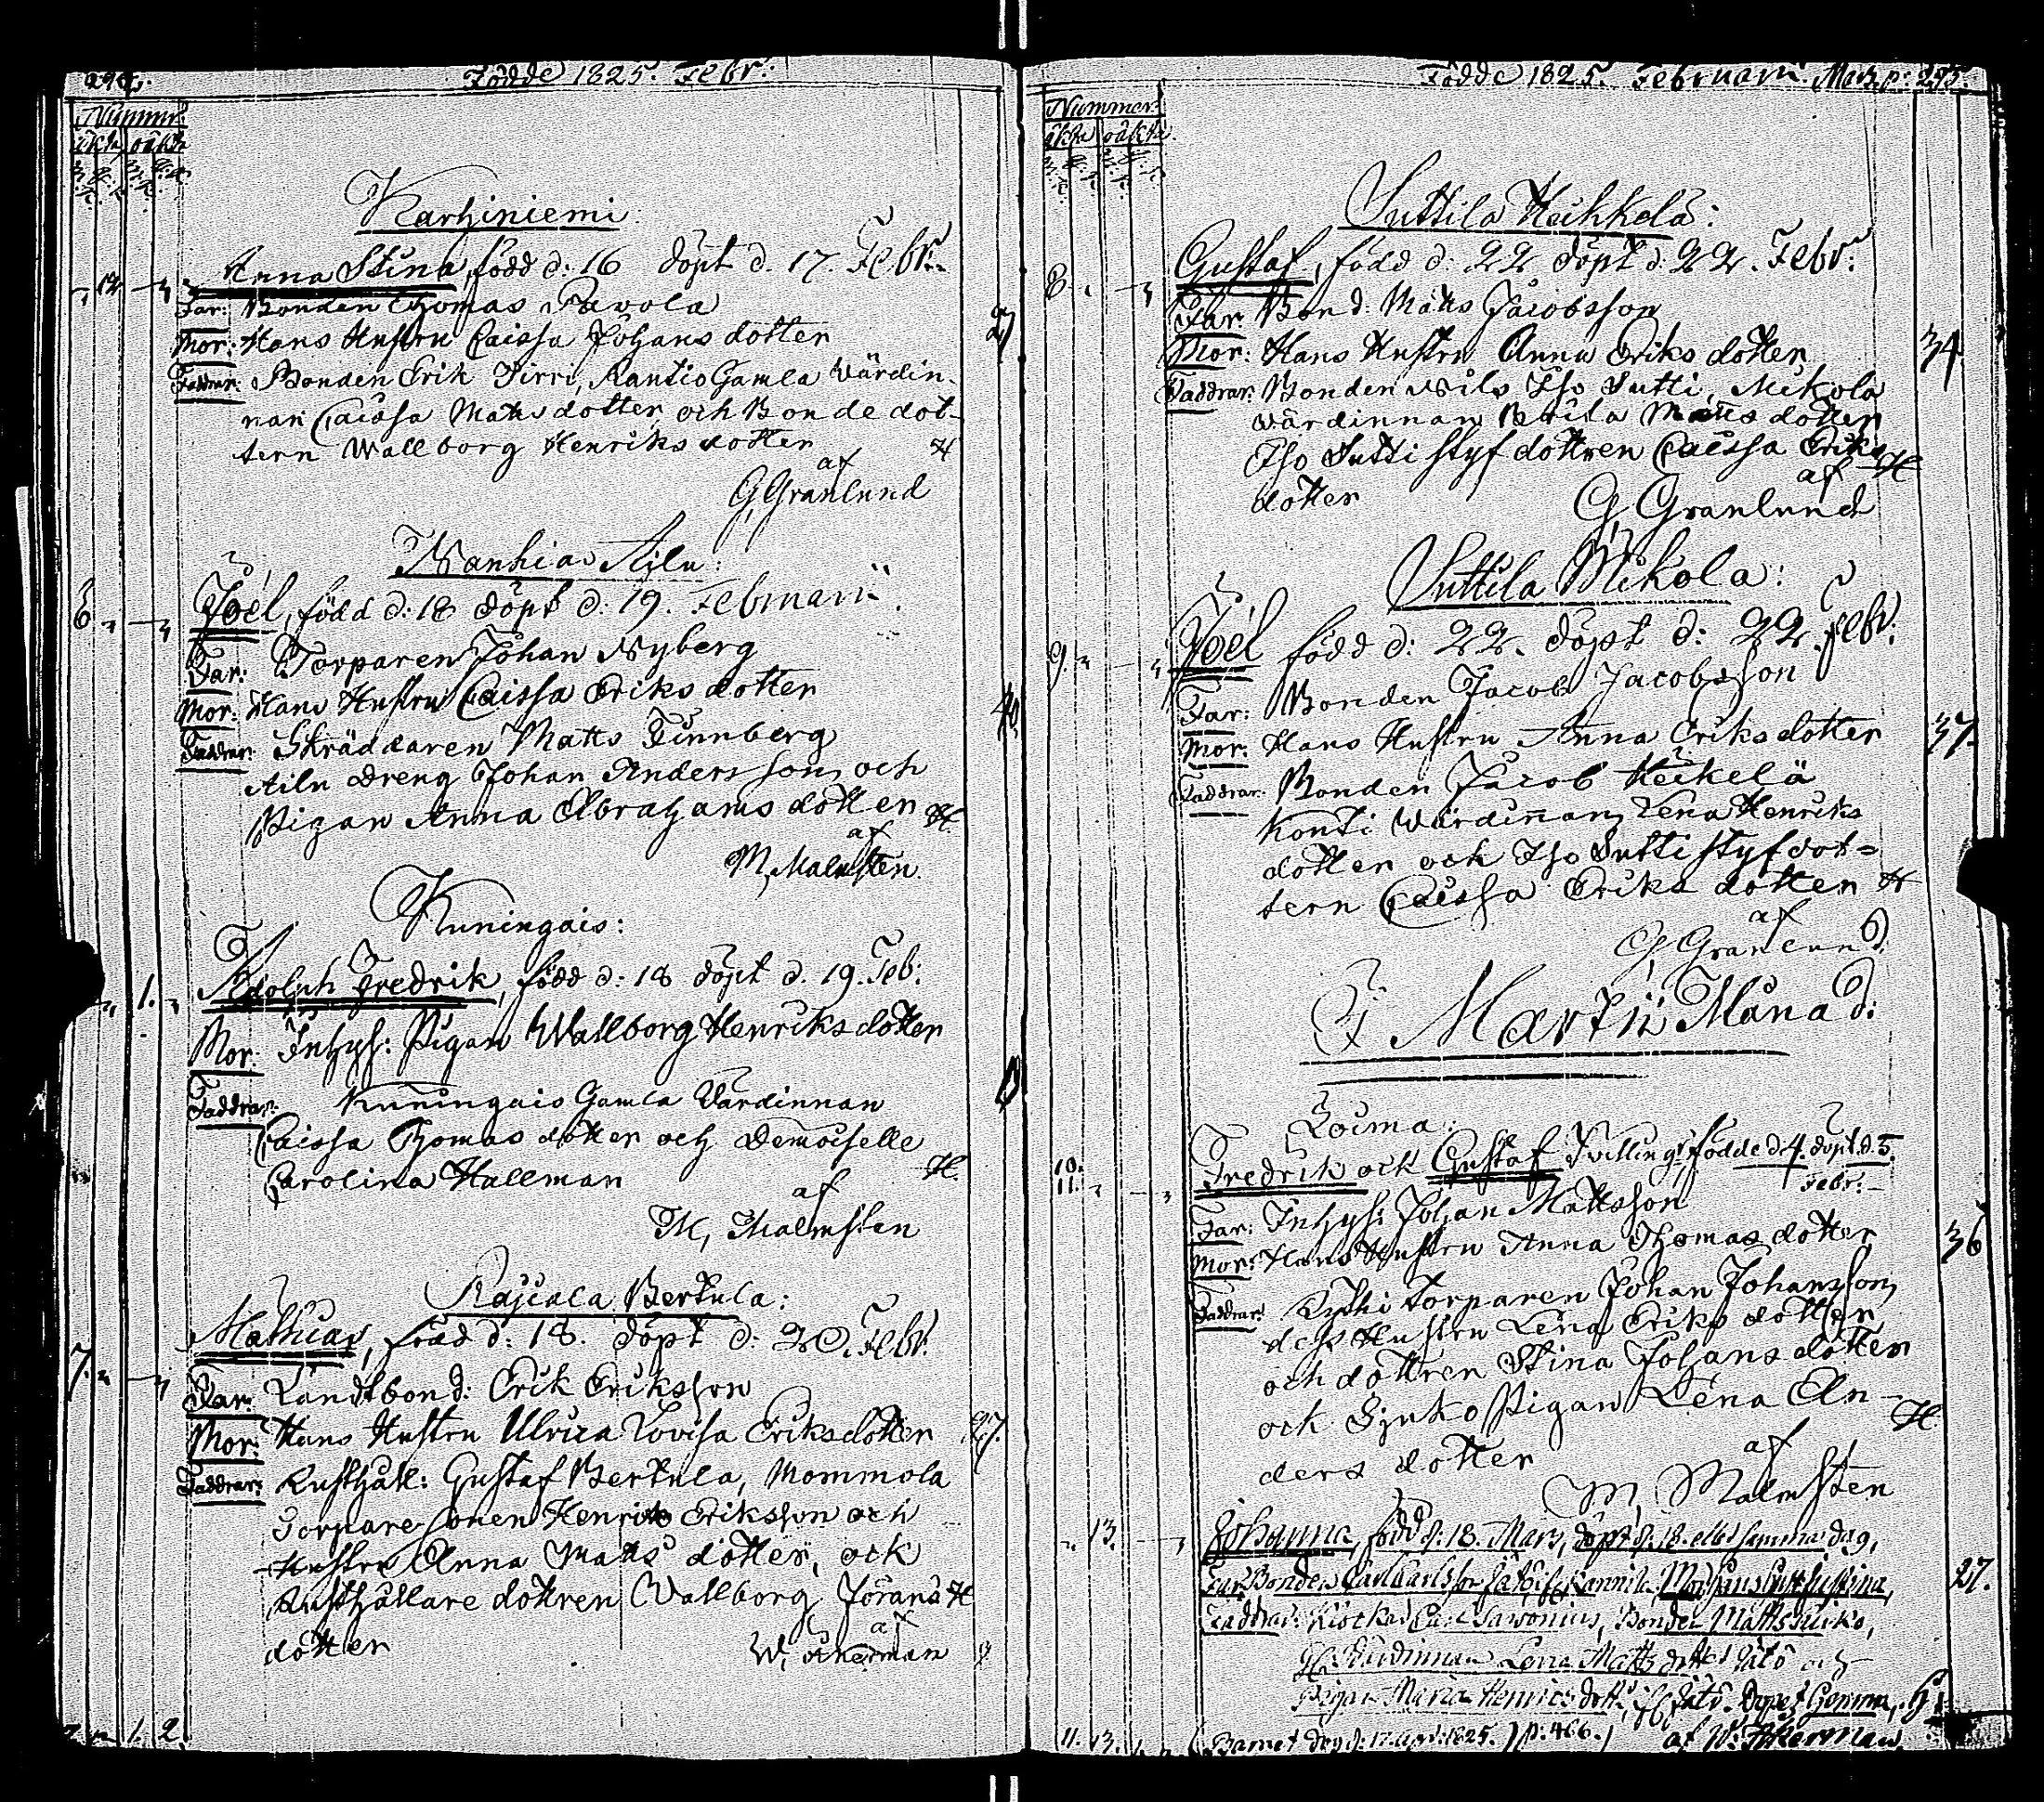 294. Födde 1825. Febr:
Nummer:
äkta oäkta
Karhiniemi:
12 Anna Stina, född d: 16 döpt d. 17. Febr:
Far: Bonden Thomas Pavola
Mor: Hans Hustru Caissa Johans dotter
Faddrar: Bonden Erik Pirri, Rantio Gamla Wärdin-
nan Caissa Matts dotter och Bonde dot-
tern Wallborg Henriks dotter H
af
G, Granlund
Wanhia Äilu:
6 Joel, född d: 18 döpt d: 19. Februarii
Far: Torparen Johan Nyberg
Mor: Hans Hustru Caissa Eriks dotter
Faddrar: Skräddaren Matts Finnberg
Äilu Dreng Johan Andersson, och
Pigan Anna Abrahams dotter H.
af
M, Malmsten
Kuningais:
1. Adolph Fredrik, född d: 18 döpt d. 19. Feb:
Mor: Inhys: Pigan Wallborg Henriks dotter
Faddrar: Kuningais Gamla Värdinnan
Caissa Thomas dotter och Demoiselle
Carolina Hallman H.
af
M, Malmsten
Raijala Bertula:
7. Mathias, född d: 18. döpt d: 20. Febr.
Far: Landtbond: Erik Eriksson
Mor: Hans Hustru Ulrica Lovisa Eriksdotter 27.
Faddrar: Rusthåll: Gustaf Bertula, Mommola
Torparesonen Henrik Eriksson och
Hustru Anna Matts dotter, och
Rusthållare dottren Wallborg Jörans H
dotter af
W, Åkerman
1. 2.
Födde 1825. Februarii Mars p: 295.
Nummer:
äkta oäkta
Suttila Heikkelä:
8 Gustaf, född d: 22 döpt d: 22. Febr:
Far: Bond: Matts Jacobsson
Mor: Hans Hustru Anna Eriks dotter 34
Faddrar: Bonden Nils Iso Sutti, Mikola
wärdinnan Brita Matts dotter
Iso Sutti styf dottren Caissa Eriks H
dotter af
G, Granlund
Suttila Mikola:
9. Joel född d: 22. döpt d: 22 Febr:
Far: Bonden Jacob Jacobsson
Mor: Hans Hustru Anna Eriksdotter 37.
Faddrar: Bonden Jacob Heikelä
Konti Wärdinnan Lena Henriks
dotter och Iso Sutti styfdot=
tern Caissa Eriks dotter H
af
G, Granlund
I Martii Månad:
Loima:
10. 11. Fredrik och Gustaf Tvillingr födde d. 4. döpt. d. 5.
Febr:
Far: Inhys: Johan Mattsson
Mor: Hans Hustru Anna Thomas dotter 36
Faddrar: torparen Johan Johansson,
des Hustru Lena Eriks dotter
och dottren Stina Johans dotter
och Sjuko Pigan Lena An-
ders dotter H.
af
M, Malmsten
13. Johanna, född d. 18. Mars, döpt d. 18. samma dag,
Far: Bonden Carl Carlsson 27.
Faddrar: Klockar Carl Savonius, Bonden Matts
Wärdinnan Lena Matts dotter Sätö och
Pigan Maria Henrics dott:
11. 13. (Barnet dog d: 17 1825.) p: 466.) af W: Åkerman.